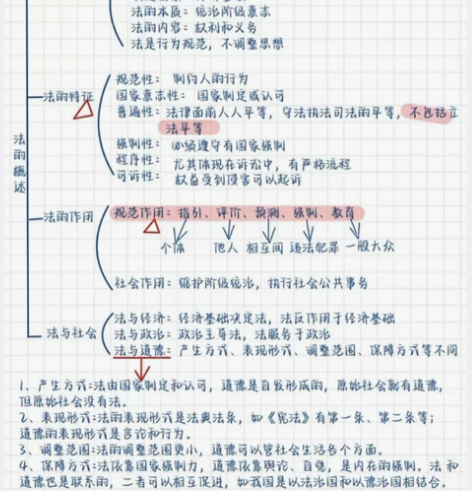 法的本质：统治阶级意志
法的内容：权利和义务
法是行为规范，不调整思想
法的概述
法的特征
规范性：制约人的行为
国家意志性：国家制定或认可
普遍性：法律面前人人平等，守法执法司法的平等，不包括立
法平等
强制性：必须遵守有国家强制
程序性：尤其体现在诉讼中，有严格流程
可诉性：权益受到侵害可以起诉
法的作用
规范作用：指引、评价、预测、强制、教育
个体 他人 相互间 违法犯罪 一般大众
社会作用：维护阶级统治，执行社会公共事务
法与社会
法与经济：经济基础决定法，法反作用于经济基础
法与政治：政治主导法，法服务于政治
法与道德：产生方式、表现形式、调整范围、保障方式等不同
1、产生方式:法由国家制定和认可，道德是自发形成的，原始社会就有道德，
但原始社会没有法。
2、表现形式:法的表现形式是法典法条，如《宪法》有第一条、第二条等；
道德的表现形式是言论和行为。
3、调整范围:法的调整范围更小，道德可以管社会生活各个方面。
4、保障方式:法依靠国家强制力，道德依靠舆论、自觉，是内在的强制。法和
道德也是联系的，二者可以相互促进，如我国是以法治国和以德治国相结合。